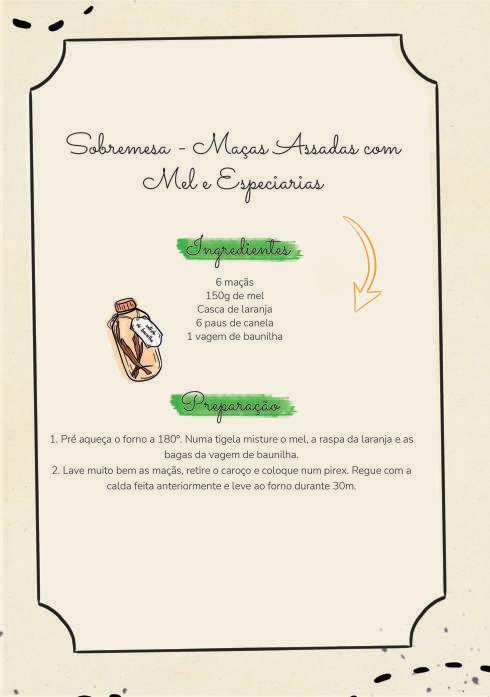 Sobremesa - Maças Assadas com
Mel e Especiarias
Ingredientes
6 maçãs
150g de mel
Casca de laranja
6 paus de canela
1 vagem de baunilha
Preparação
1. Pré aqueça o forno a 180º. Numa tigela misture o mel, a raspa da laranja e as
bagas da vagem de baunilha.
2. Lave muito bem as maçãs, retire o caroço e coloque num pirex. Regue com a
calda feita anteriormente e leve ao forno durante 30m.